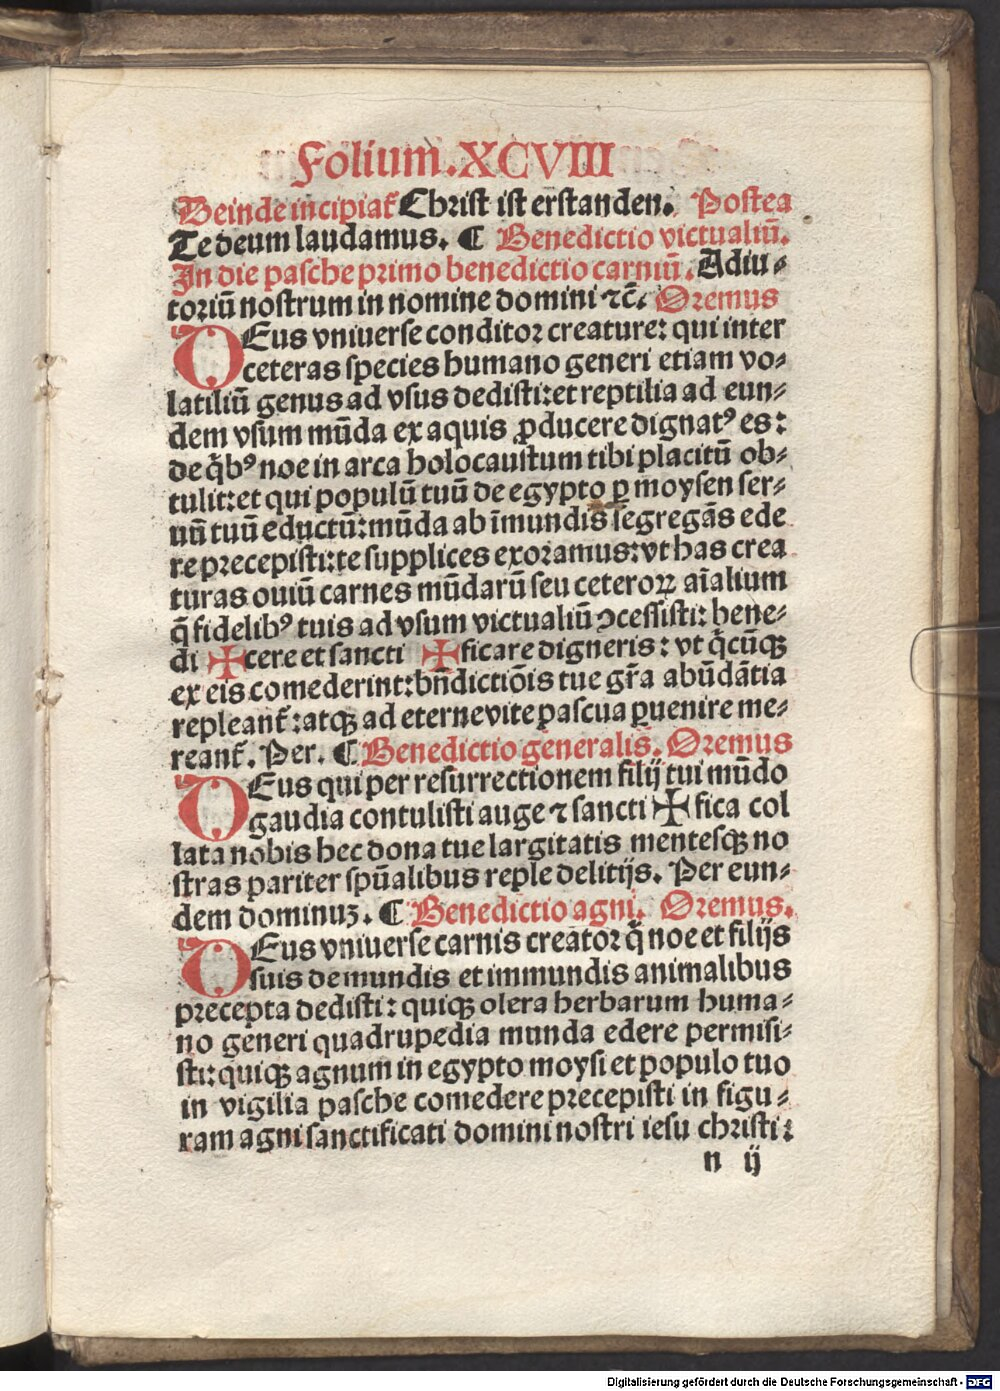 Folium. XCVIII
Deinde incipiat᷑ Christ ist erstanden. Postea
Te deum laudamus. ¶ Benedictio victualiū.
In die pasche primo benedictio carniū. Adiu⸗
toriū nostrum in nomine domini ⁊c̄. Oremus
DEus vniuerse conditor creature: qui inter
ceteras species humano generi etiam vo⸗
latiliū genus ad vsus dedisti: et reptilia ad eun⸗
dem vsum mūda ex aquis ꝓducere dignatꝰ es:
de q̄bꝰ noe in arca holocaustum tibi placitū ob⸗
tulit: et qui populū tuū de egypto ꝑ moysen ser⸗
uū tuū eductū: mūda ab īmundis segregās ede
re precepisti: te supplices exoramus: vt has crea
turas ouiū carnes mūdarū seu ceteroꝝ aīalium
q̄ fidelibꝰ tuis ad vsum victualiū ꝯcessisti: bene⸗
di ✠ cere et sancti ✠ ficare digneris: vt q̄cūqꝫ
ex eis comederint: bn̄dictiōis tue gr̄a abūdātia
repleant᷑: atqꝫ ad eterne vite pascua ꝑuenire me⸗
reant᷑. Per. ¶ Benedictio generalis. Oremus
DEus qui per resurrectionem filij tui mūdo
gaudia contulisti auge ⁊ sancti ✠ fica col
lata nobis hec dona tue largitatis mentesqꝫ no
stras pariter spūalibus reple delitijs. Per eun⸗
dem dominuꝫ. ¶ Benedictio agni. Oremus.
DEus vniuerse carnis creator q̄ noe et filijs
suis de mundis et immundis animalibus
precepta dedisti: quiqꝫ olera herbarum huma⸗
no generi quadrupedia munda edere permisi⸗
sti: quiqꝫ agnum in egypto moysi et populo tuo
in vigilia pasche comedere precepisti in figu⸗
ram agni sanctificati domini nostri iesu christi:
n ij
Digitalisierung gefördert durch die Deutsche Forschungsgemeinschaft - DFG